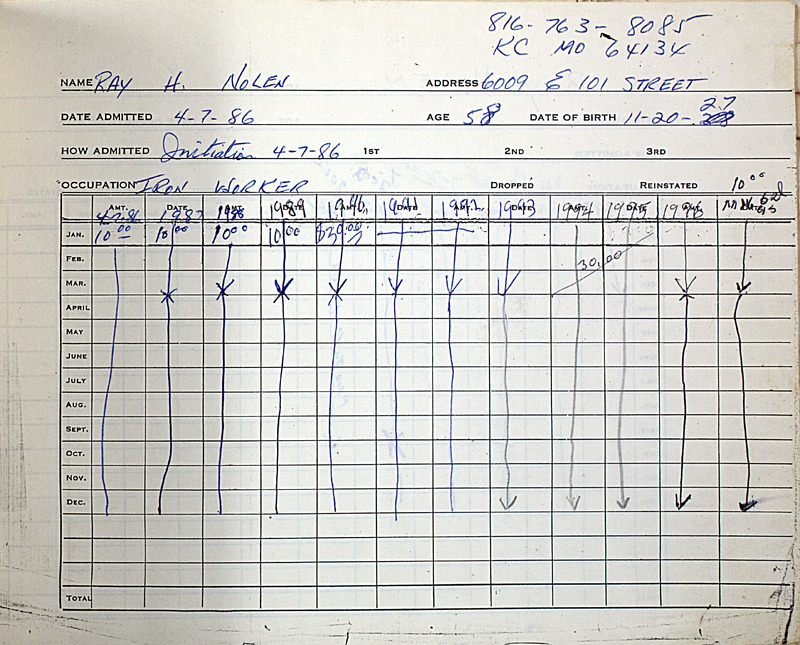 816-763-8085
KC MO 64134
NAME RAY H. NOLEN ADDRESS 6009 E 101 STREET
DATE ADMITTED 4-7-86 AGE 58 DATE OF BIRTH 11-20-27
HOW ADMITTED Initiation 4-7-86 1ST 2ND 3RD
OCCUPATION IRON WORKER DROPPED REINSTATED 10 00
AMT. DATE AMT. DATE AMT. DATE AMT. DATE AMT. DATE AMT. DATE
4-7-86 1987 1988 1989 1990 1991 1992 1993 1994 1995 1996
JAN. 10 00 10 00 10 00 10 00 $30.00
FEB. 30.00
MAR.
APRIL
MAY
JUNE
JULY
AUG.
SEPT.
OCT.
NOV.
DEC.
TOTAL